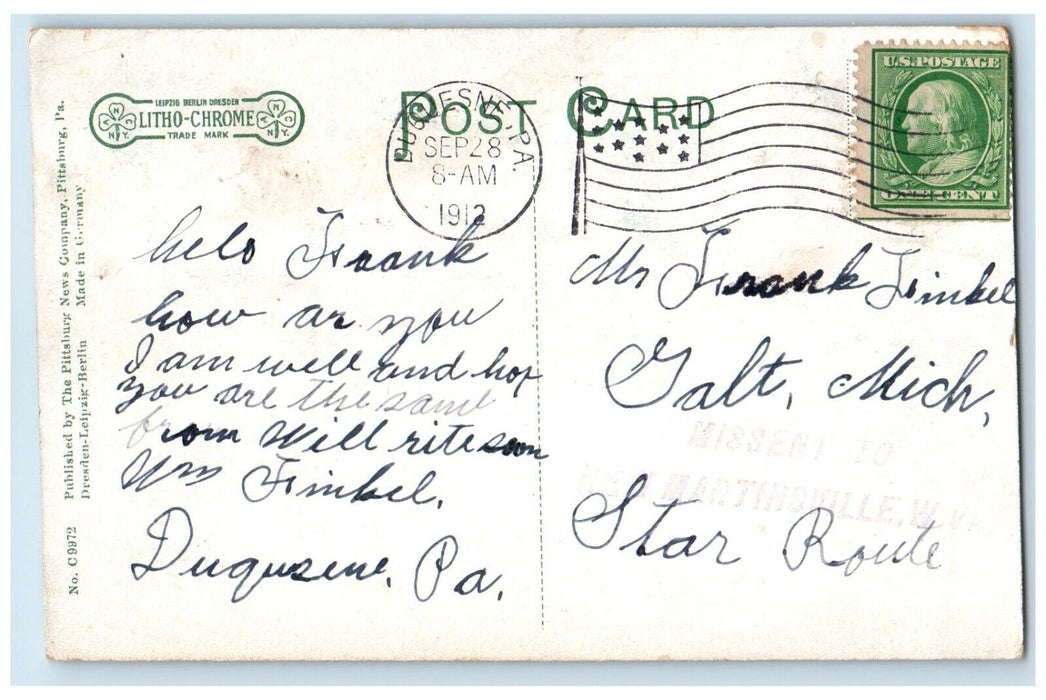 LEIPZIG BERLIN DRESDEN
LITHO-CHROME
TRADE MARK
N N Y
N N Y
POST CARD
DUQUESNE, PA.
SEP 28
8-AM
1912
U.S. POSTAGE
ONE CENT
No. C 9972 Published by The Pittsburg News Company, Pittsburg, Pa.
Dresden-Leipzig-Berlin Made in Germany
helo Frank
how ar you
I am well and hop
you are the same
from Will rite soon
Wm Finkel.
Duqusene, Pa.
Mr Frank Finkel
Galt, Mich,
MISSENT TO
NEW MARTINSVILLE, W. VA
Star Route